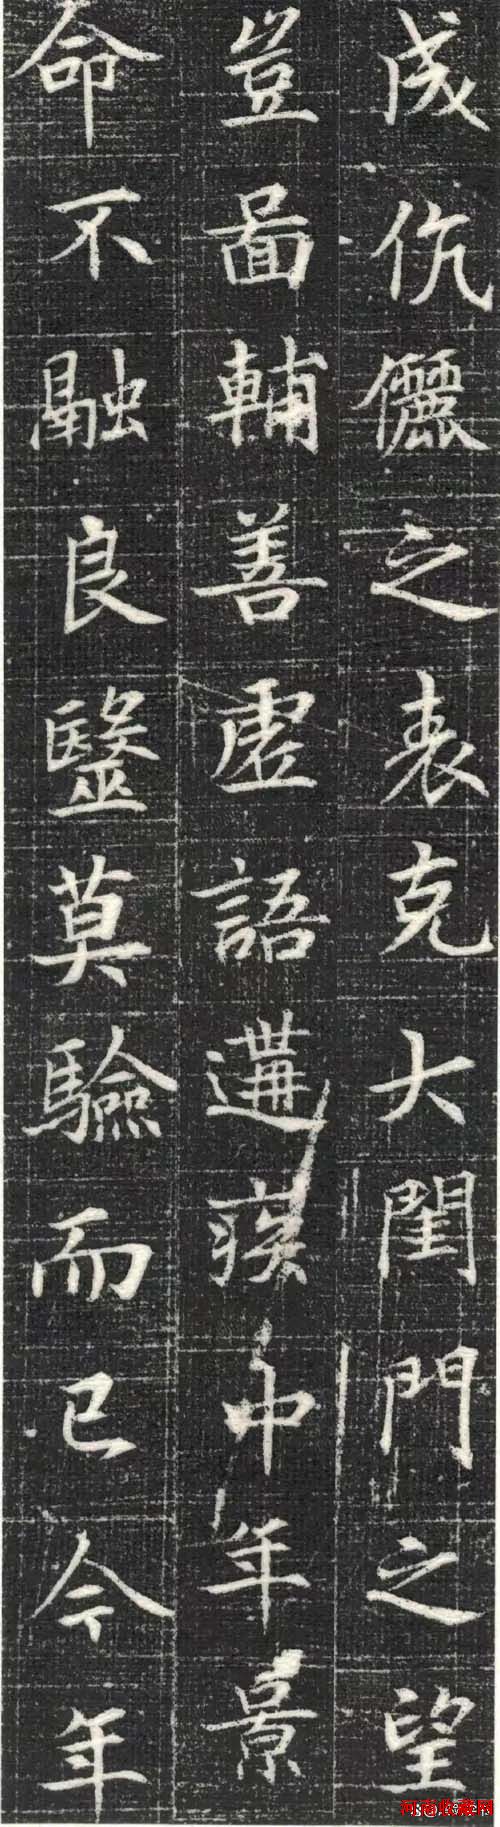 成伉儷之表克大閨門之望
豈啚輔善虛語遘疾中年景
命不融良毉莫驗而已今年
河南收藏网